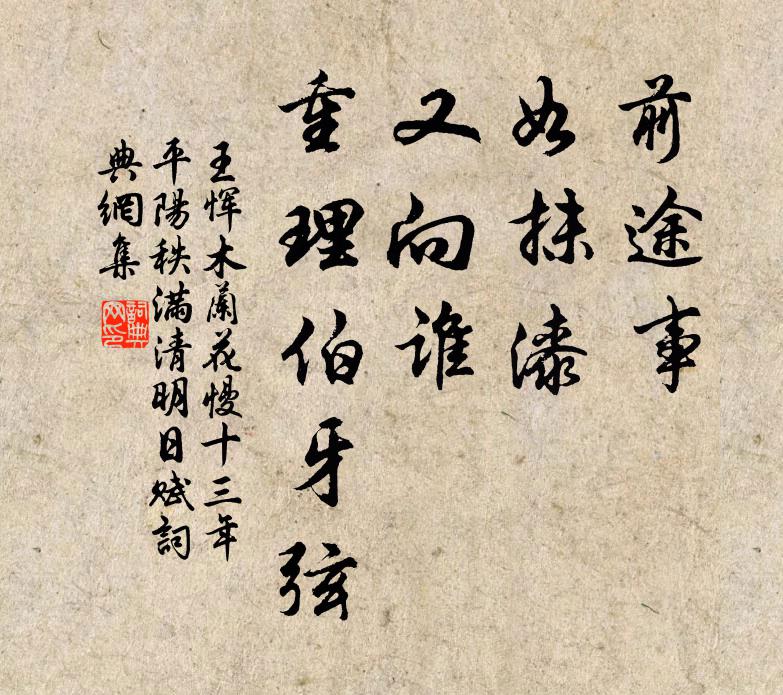 前途事
如抹漆
又向谁
重理伯牙弦
王恽木蘭花慢十三年
平陽秩滿清明日赋詞
典網集
詞典
网印